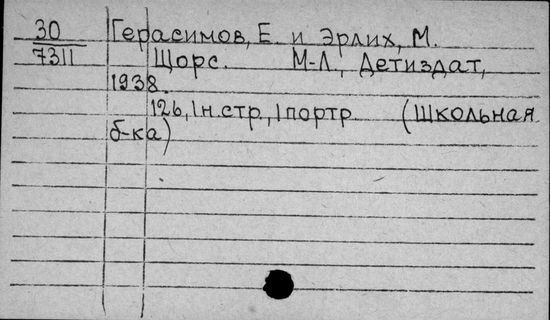 30 Герасимов, Е. и Эрлих, М.
7311 Щорс. М-Л., Детиздат,
1938.
126, 1н.стр., 1портр. (Школьная
б-ка)